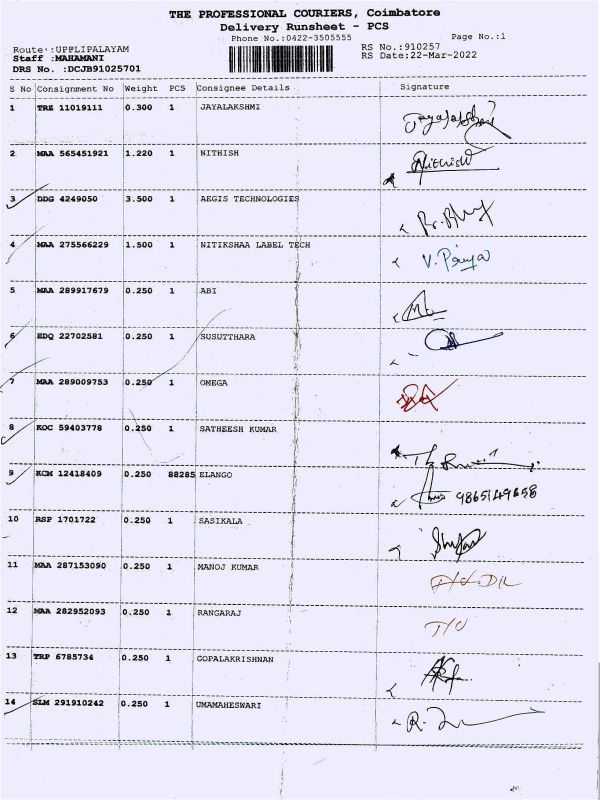 THE PROFESSIONAL COURIERS, Coimbatore
Delivery Runsheet - PCS
Phone No.:0422-3505555 Page No.:1
Route :UPPLIPALAYAM RS No.:910257
Staff :MAHAMANI RS Date:22-Mar-2022
DRS No. :DCJB91025701
S No Consignment No Weight PCS Consignee Details Signature
1 TRE 11019111 0.300 1 JAYALAKSHMI
2 MAA 565451921 1.220 1 NITHISH Nithish
3 DDG 4249050 3.500 1 AEGIS TECHNOLOGIES
4 MAA 275566229 1.500 1 NITIKSHAA LABEL TECH V. Priya
5 MAA 289917679 0.250 1 ABI
6 EDQ 22702581 0.250 1 SUSUTTHARA
7 MAA 289009753 0.250 1 OMEGA
8 KOC 59403778 0.250 1 SATHEESH KUMAR
9 KCM 12418409 0.250 88285 ELANGO 9865149658
10 RSP 1701722 0.250 1 SASIKALA
11 MAA 287153090 0.250 1 MANOJ KUMAR
12 MAA 282952093 0.250 1 RANGARAJ
13 TRP 6785734 0.250 1 GOPALAKRISHNAN
14 SLM 291910242 0.250 1 UMAMAHESWARI